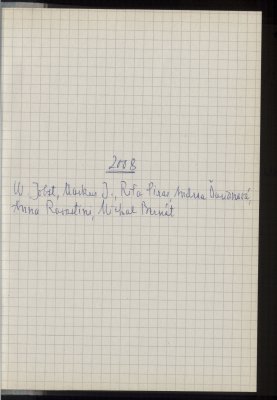 2008
W Jobst, Markus J., Rita Piras, Andrea Ďurianová,
Anna Ravastini, Michal Bernát